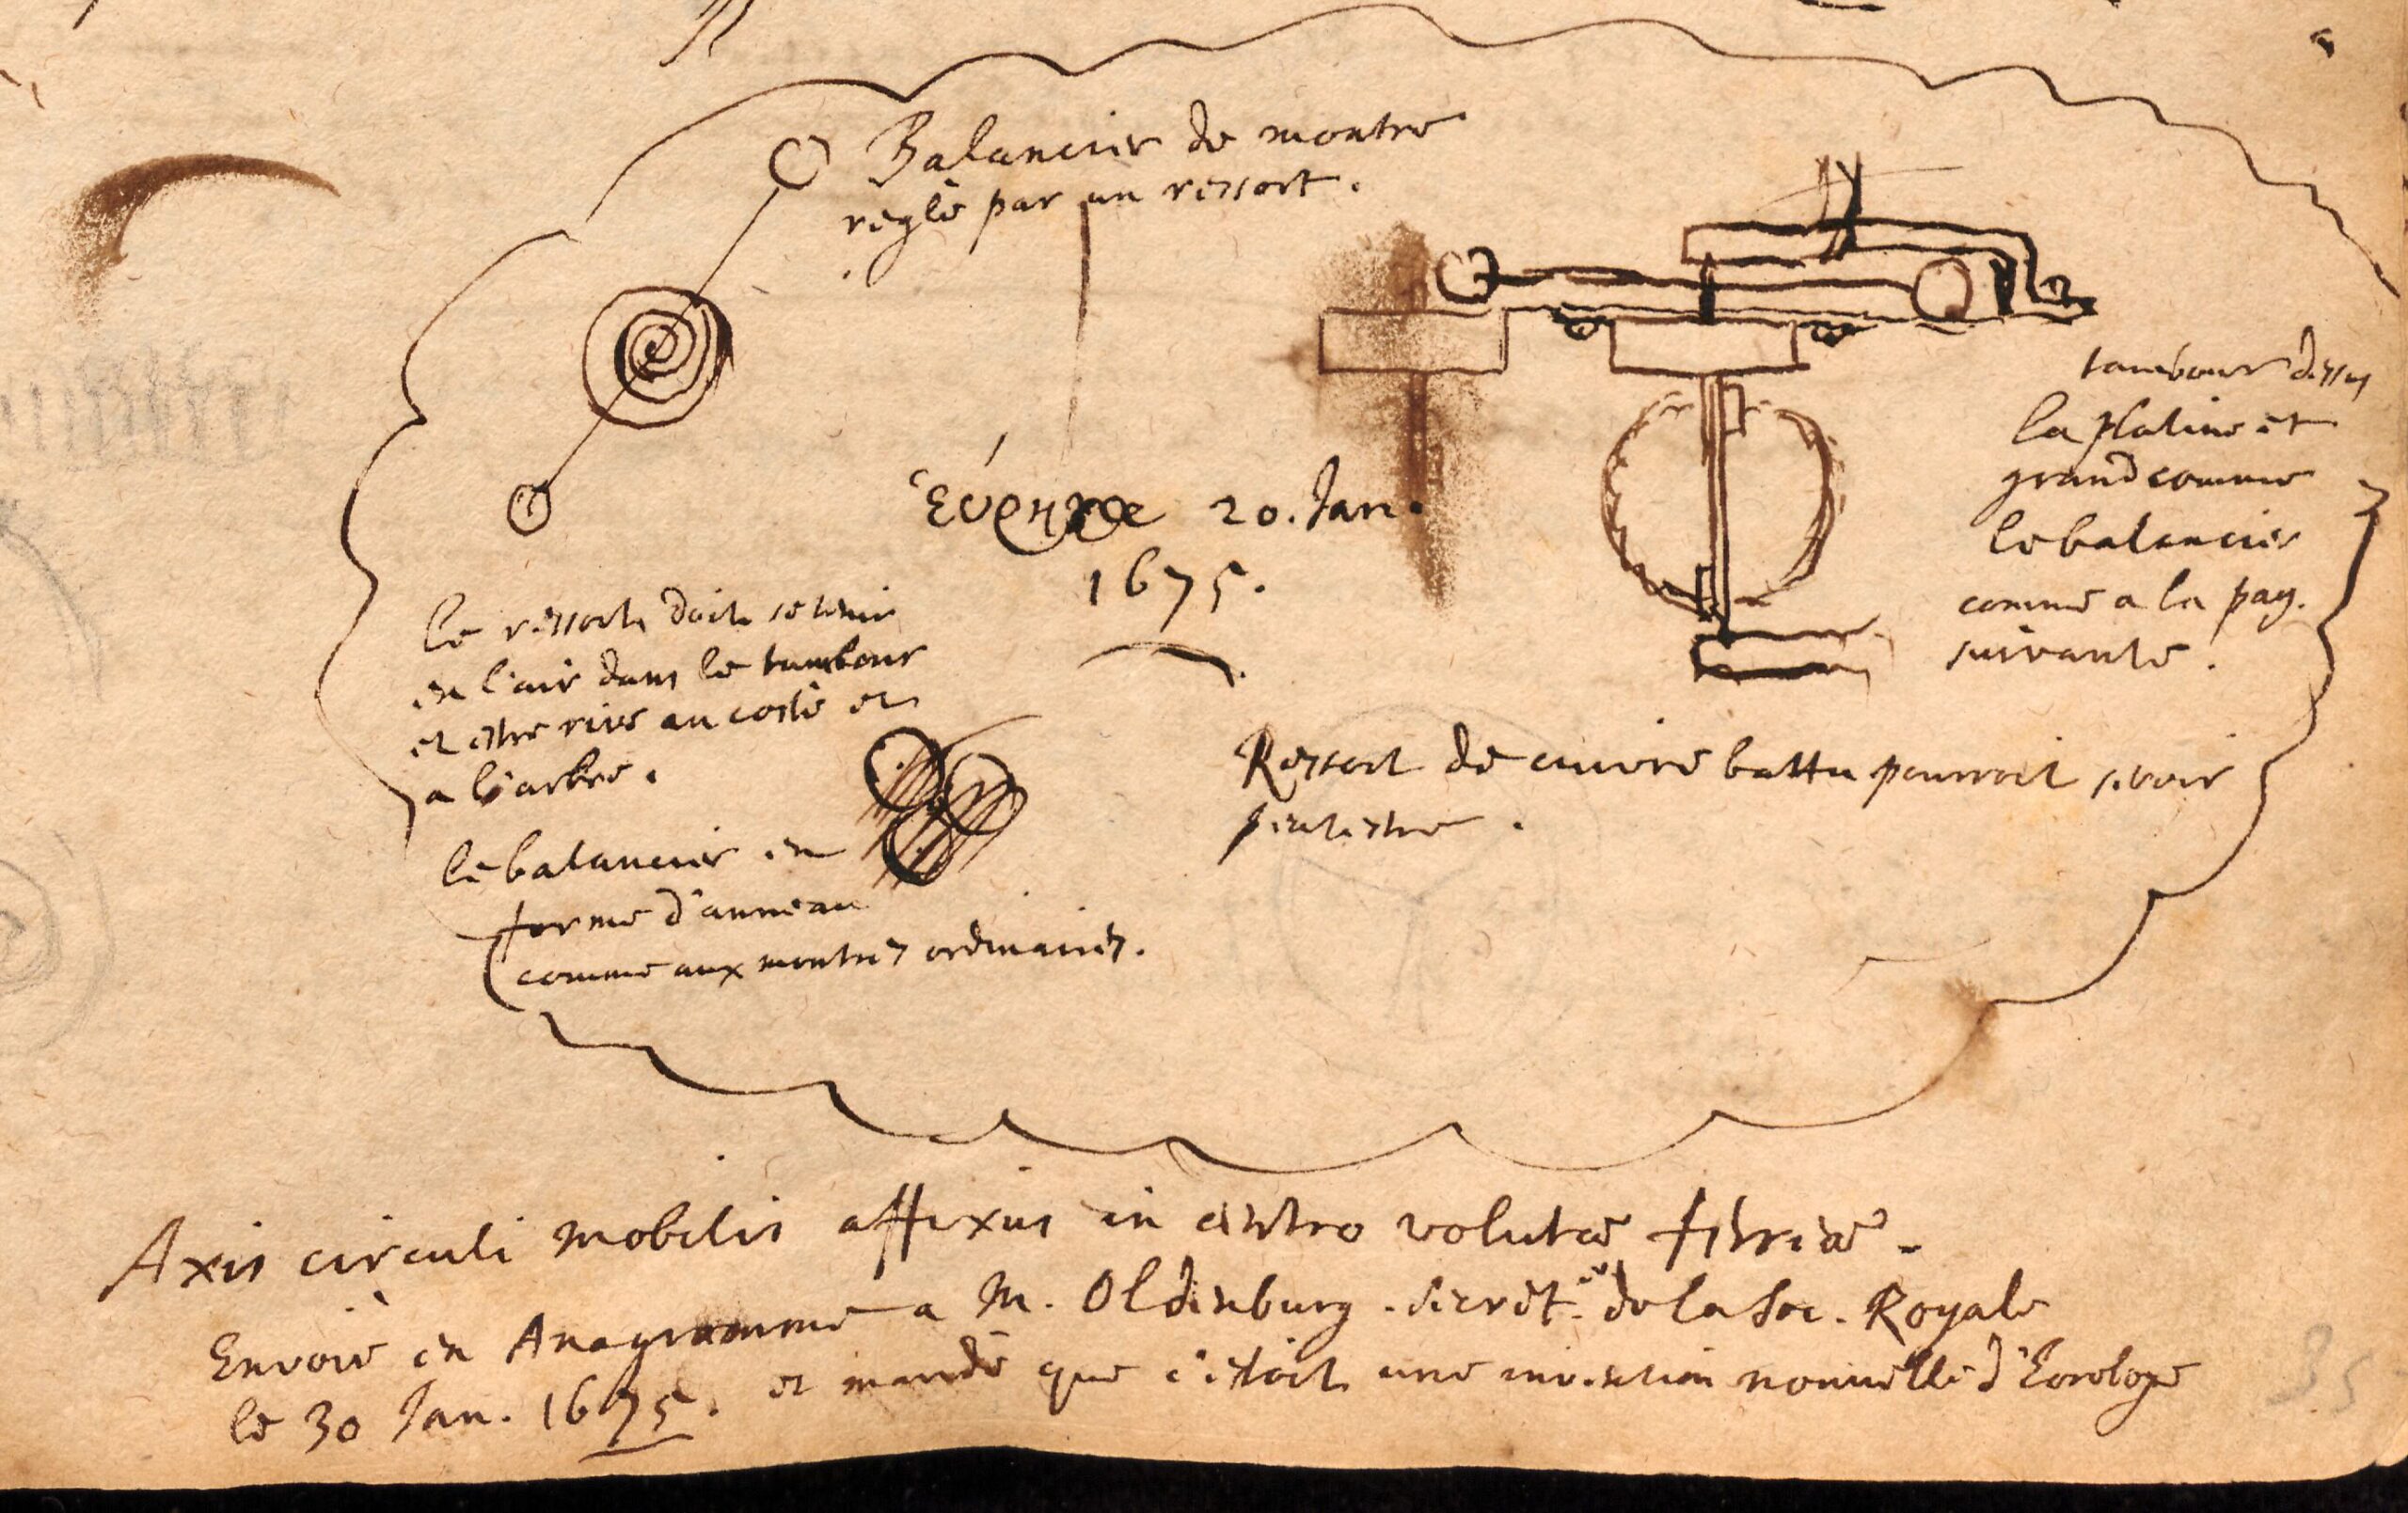 Balancier de montre
reglè par un ressort.
tambour dessus
la platine et
grand comme
le balancier
comme a la pag.
suivante.
εὕρηκα 20. Jan.
1675.
le ressort doit se tenir
en l'air dans le tambour
et estre rivè au costè et
a l'arbre.
Ressort de cuivre battu pourroit servir
peutestre.
le balancier en
forme d'anneau
comme aux montres ordinaires.
Axis circuli mobilis affixus in centro volutæ ferreæ.
Envoiè en Anagramme a M. Oldenburg. secret. de la Soc. Royale
le 30 Jan. 1675. et mandè que c'estoit une invention nouvelle d'horologe
35